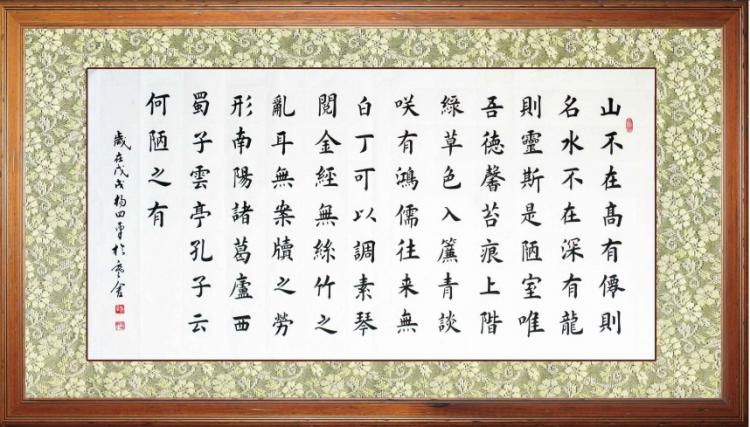 山不在髙有僊則
名水不在深有龍
則靈斯是陋室唯
吾德馨苔痕上階
綠草色入簾青談
咲有鴻儒往来無
白丁可以調素琴
閱金經無絲竹之
亂耳無案牘之勞
形南陽諸葛廬西
蜀子雲亭孔子云
何陋之有
歲在戊戌